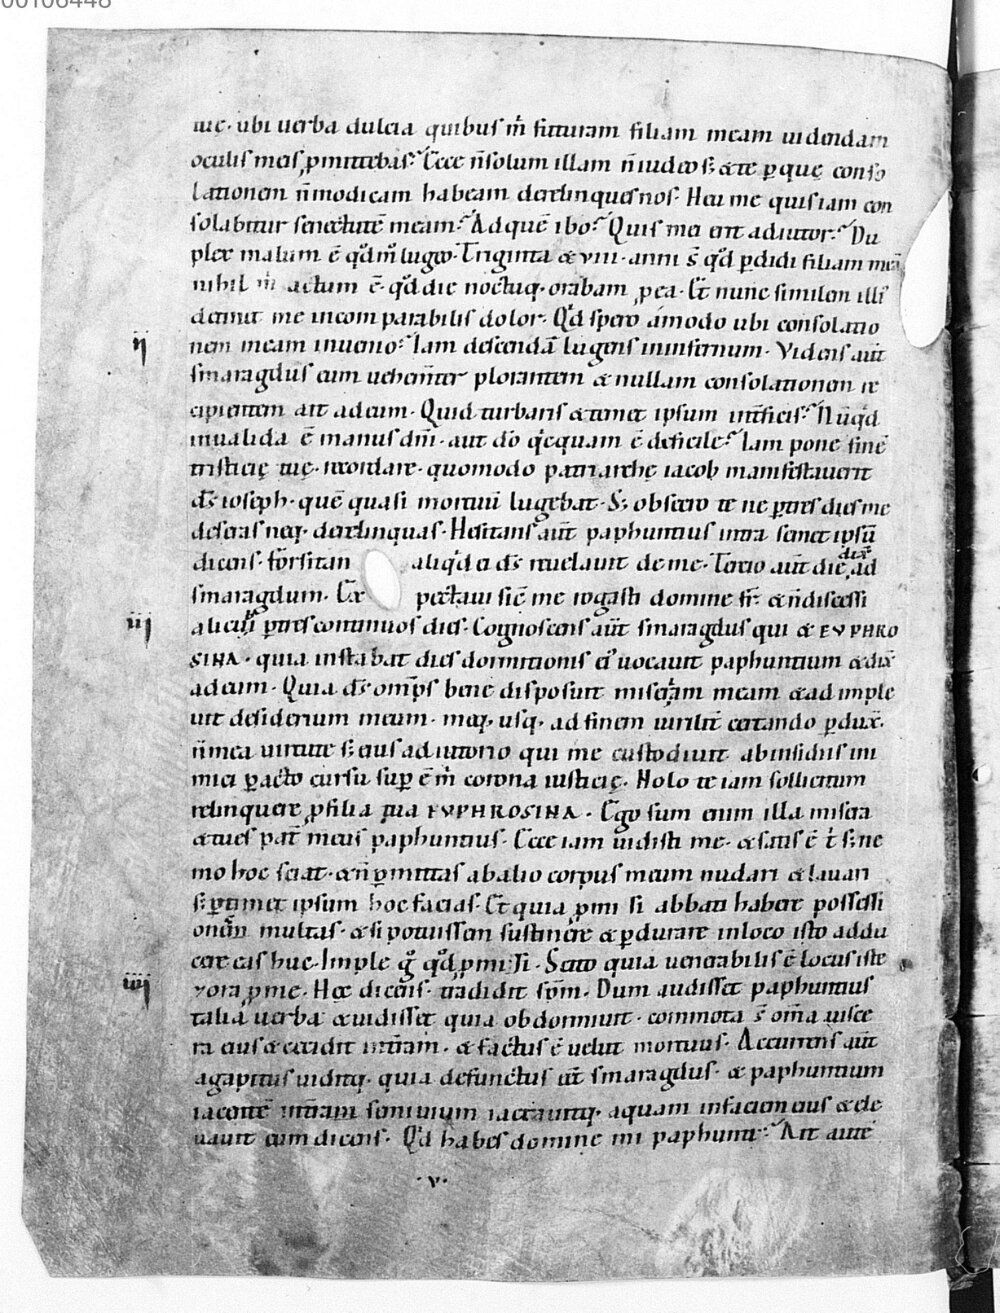 00106448
tuę· ubi uerba dulcia quibus m̄ futuram filiam meam uidendam
oculis meis ꝓmittebas? Ecce ñ solum illam ñ uideo sꝫ & te ꝑ quę conso
lationem ñ modicam habeam derelinques nos· Heu me quis iam con
solabitur senectutē meam? Ad quē ibo? Quis mei erit adiutor? Du
plex malum ē qd̓ m̊ lugeo· Triginta & VIII· anni s̄ qd̓ ꝑdidi filiam meā
nihil m̄ actum ē· qd̓ die noctuq· orabam ꝓ ea· Et nunc similem illi
detinet me incomparabilis dolor· Qd̓ spero ámodo ubi consolatio
nem meam inuenio? Iam descendā lugens in infernum· Videns aūt
smaragdus eum uehem̄ter plorantem & nullam consolationem re
cipientem ait ad eum· Quid turbaris & temet ipsum int̄ficis? Nūqd̓
inualida ē manus dn̄i· aut dō q̇cquam ē deficile? Iam pone finē
tristicię tuę· recordare· quomodo patriarchę iacob manifestauerit
ds̄ ioseph· quē quasi mortuū lugebat· Sꝫ obsecro te ne ꝑ tres dies me
deseras neq· derelinquas· Hesitans aūt paphuntius intra semet ipsū
dicens· forsitan aliqd̓ ei ds̄ reuelauit de me· Tercio aūt die, ad
dix̄
smaragdum· Ex pectaui sic̄ me rogasti domine fr̄ & ñ discessi
alicubi ꝑ tres continuos dies· Cognoscens aūt smaragdus qui & EVPHRO
SINA· quia instabat dies dormitionis ei' uocauit paphuntium & dix̄
ad eum· Quia ds̄ omp̄s bene disposuit miseriam meam & adimple
uit desiderium meum· meq· usq· ad finem uirilit̄ certando ꝑdux̄·
ñ mea uirtute sꝫ eius adiutorio qui me custodiuit ab insidiis ini
mici ꝑacto cursu suꝑ ē m̄ corona iusticię· Nolo te iam sollicitum
relinquere ꝓ filia tua EVPHROSINA· Ego sum enim illa misera
& tu es pat̄ meus paphuntius· Ecce iam uidisti me· & satis ē t̄ sꝫ ne
mo hoc sciat· & ñ ꝑmittas ab alio corpus meum nudari & lauari
sꝫ ꝑ temet ipsum hoc facias· Et quia ꝓmisi abbati habere possessi
onem multas· & si potuissem sustinere & ꝑdurare in loco isto addu
cere eas huc· Imple g̊ qd̓ ꝓmisi· Scito quia uenerabilis ē locus iste
& ora ꝓ me· Hęc dicens· tradidit spm̄· Dum audisset paphuntius
talia uerba & uidisset quia obdormiuit· commota s̄ om̄a uisce
ra eius & cecidit in t̄ram· & factus ē uelut mortuus· Accurrens aūt
agapitus uiditq· quia defunctus ēēt smaragdus· & paphuntium
iacentē in t̄ram semiuiuum iactauitq· aquam in faciem eius & ele
uauit eum dicens· Qd̓ habes domine mi paphunti? Ait autē
·v·
ii
iii
iiii